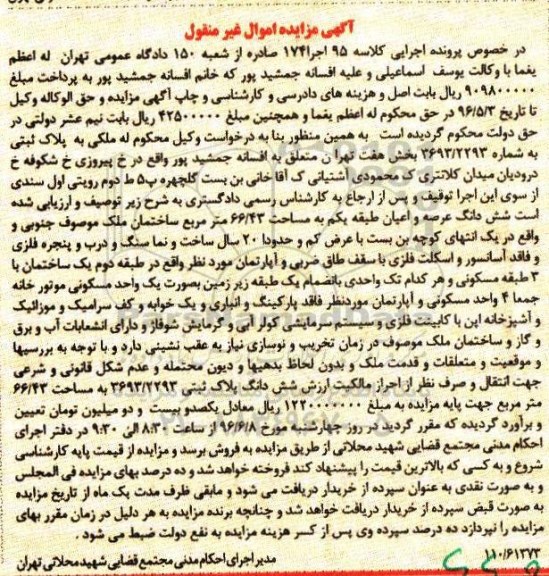 آگهی مزایده اموال غیر منقول
در خصوص پرونده اجرایی کلاسه ۹۵ اجرا۱۷۴ صادره از شعبه ۱۵۰ دادگاه عمومی تهران له اعظم
یغما با وکالت یوسف اسماعیلی و علیه افسانه جمشید پور که خانم افسانه جمشید پور به پرداخت مبلغ
۹۰۹۸۰۰۰۰۰ ریال بابت اصل و هزینه های دادرسی و کارشناسی و چاپ آگهی مزایده و حق الوکاله وکیل
تا تاریخ ۹۶/۵/۳ در حق محکوم له اعظم یغما و همچنین مبلغ ۴۲۵۰۰۰۰۰ ریال بابت نیم عشر دولتی در
حق دولت محکوم گردیده است به همین منظور بنا به درخواست وکیل محکوم له ملکی به پلاک ثبتی
به شماره ۳۶۹۳/۲۲۹۳ بخش هفت تهران متعلق به افسانه جمشید پور واقع در خ پیروزی خ شکوفه خ
درودیان میدان کلانتری ک محمودی آشتیانی ک آقا خانی بن بست گلچهره پ۵ ط دوم رویتی اول سندی
از سوی این اجرا توقیف و پس از ارجاع به کارشناس رسمی دادگستری به شرح زیر توصیف و ارزیابی شده
است شش دانگ عرصه و اعیان طبقه یکم به مساحت ۶۶/۴۳ متر مربع ساختمان ملک موصوف جنوبی و
واقع در یک انتهای کوچه بن بست با عرض کم و حدودا ۲۰ سال ساخت و نما سنگ و درب و پنجره فلزی
و فاقد آسانسور و اسکلت فلزی با سقف طاق ضربی و آپارتمان مورد نظر واقع در طبقه دوم یک ساختمان با
۳ طبقه مسکونی و هر کدام تک واحدی بانضمام یک طبقه زیر زمین بصورت یک واحد مسکونی موتور خانه
جمعا ۴ واحد مسکونی و آپارتمان موردنظر فاقد پارکینگ و انباری و یک خوابه و کف سرامیک و موزائیک
و آشپزخانه اپن با کابینت فلزی و سیستم سرمایشی کولر آبی و گرمایش شوفاژ و دارای انشعابات آب و برق
و گاز و ساختمان ملک موصوف در زمان تخریب و نوسازی نیاز به عقب نشینی دارد و با توجه به بررسیها
و موقعیت و متعلقات و قدمت ملک و بدون لحاظ بدهیها و دیون محتمله و عدم شکل قانونی و شرعی
جهت انتقال و صرف نظر از احراز مالکیت ارزش شش دانگ پلاک ثبتی ۳۶۹۳/۲۲۹۳ به مساحت ۶۶/۴۳
متر مربع جهت پایه مزایده به مبلغ ۱۲۲۰۰۰۰۰۰۰ ریال معادل یکصدو بیست و دو میلیون تومان تعیین
و برآورد گردیده که مقرر گردید در روز چهارشنبه مورخ ۹۶/۶/۸ از ساعت ۸:۳۰ الی ۹:۳۰ در دفتر اجرای
احکام مدنی مجتمع قضایی شهید محلاتی از طریق مزایده به فروش برسد و مزایده از قیمت پایه کارشناسی
شروع و به کسی که بالاترین قیمت را پیشنهاد کند فروخته خواهد شد و ده درصد بهای مزایده فی المجلس
و به صورت نقدی به عنوان سپرده از خریدار دریافت می شود و مابقی ظرف مدت یک ماه از تاریخ مزایده
به صورت قبض سپرده از خریدار دریافت خواهد شد و چنانچه برنده مزایده به هر دلیل در زمان مقرر بهای
مزایده را نپردازد ده درصد سپرده وی پس از کسر هزینه مزایده به نفع دولت ضبط می شود .
۱۱۰/۶۱۳۷۳
مدیر اجرای احکام مدنی مجتمع قضایی شهید محلاتی تهران